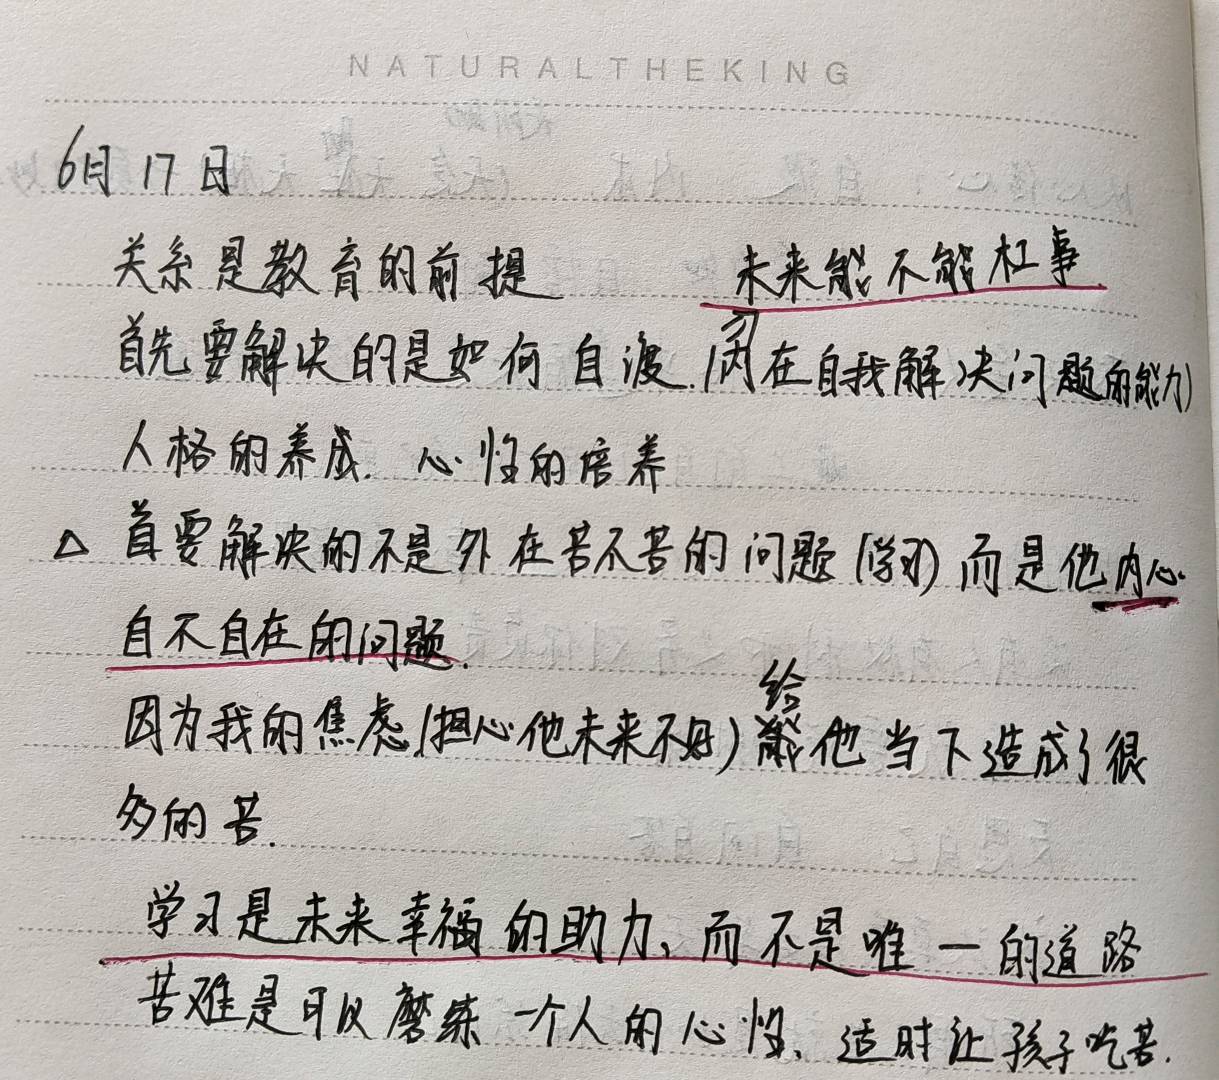 NATURALTHEKING
6月17日
关系是教育的前提 未来能不能杠事
首先要解决的是如何自渡.(内在自我解决问题的能力)
人格的养成.心性的培养
△ 首要解决的不是外在苦不苦的问题(学习)而是他内心
自不自在的问题.
因为我的焦虑(担心他未来不好)给他当下造成了很
多的苦.
学习是未来幸福的助力、而不是唯一的道路
苦难是可以磨练一个人的心性、适时让孩子吃苦.